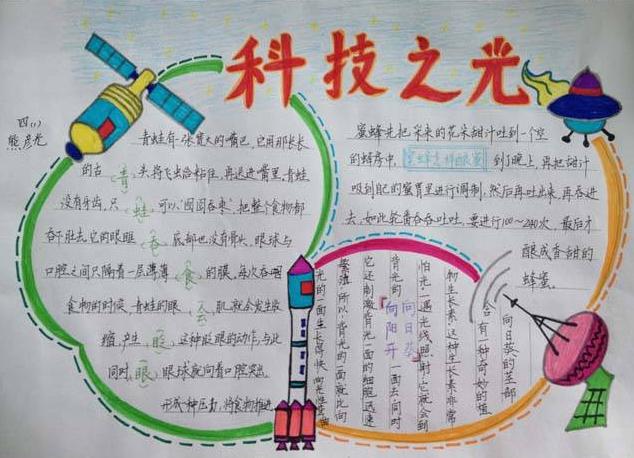 科技之光
四(1)
熊彦光
青蛙有一张宽大的嘴巴,它用那长长
的舌头将飞虫给粘住,再送进嘴里,青蛙
没有牙齿,只可以"囫囵吞枣",把整个食物都
吞下肚去,它的眼眶底部也没有骨头,眼球与
口腔之间只隔着一层薄薄的膜,每次吞咽
食物的时候,青蛙的眼肌就会发生收
缩,产生这种眨眼的动作,与此
同时,眼球就向着口腔突出,
形成一种压力,将食物推进
青
蛙
吞
食
会
眨
眼
蜜蜂先把采来的花朵甜汁吐到一个空
的蜂房中,到了晚上,再把甜汁
吸到自己的蜜胃里进行调制,然后再吐出来,再吞进
去,如此轮番吞吞吐吐,要进行100~240次,最后才
酿成香甜的
蜂蜜。
蜜蜂怎样酿蜜
向日葵的茎部
含有一种奇妙的植
物生长素,这种生长素非常
怕光,一遇光线照射,它就会到
背光的一面去,同时
它还刺激背光一面的细胞迅速
繁殖,所以,背光的一面就比向
光的一面生长得快,向光性弯曲
向日葵
向阳开